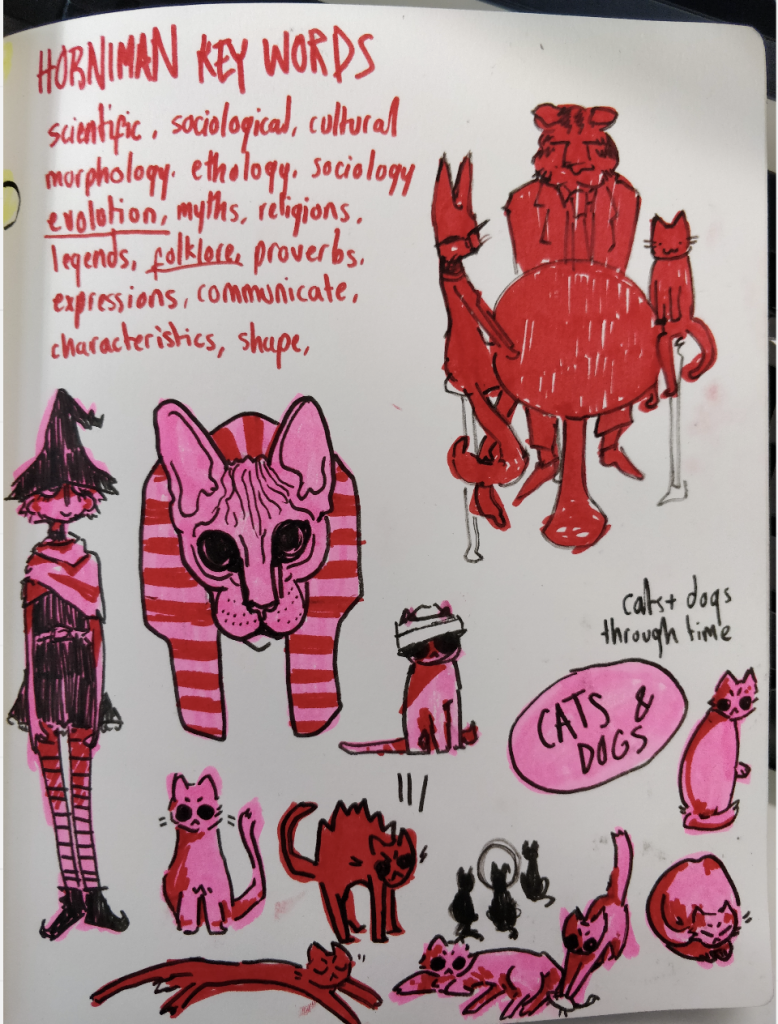 HORNIMAN KEY WORDS
scientific, sociological, cultural
morphology. ethology. sociology
evolution, myths, religions,
legends, folklore, proverbs,
expressions, communicate,
characteristics, shape,
cats + dogs
through time
CATS &
DOGS